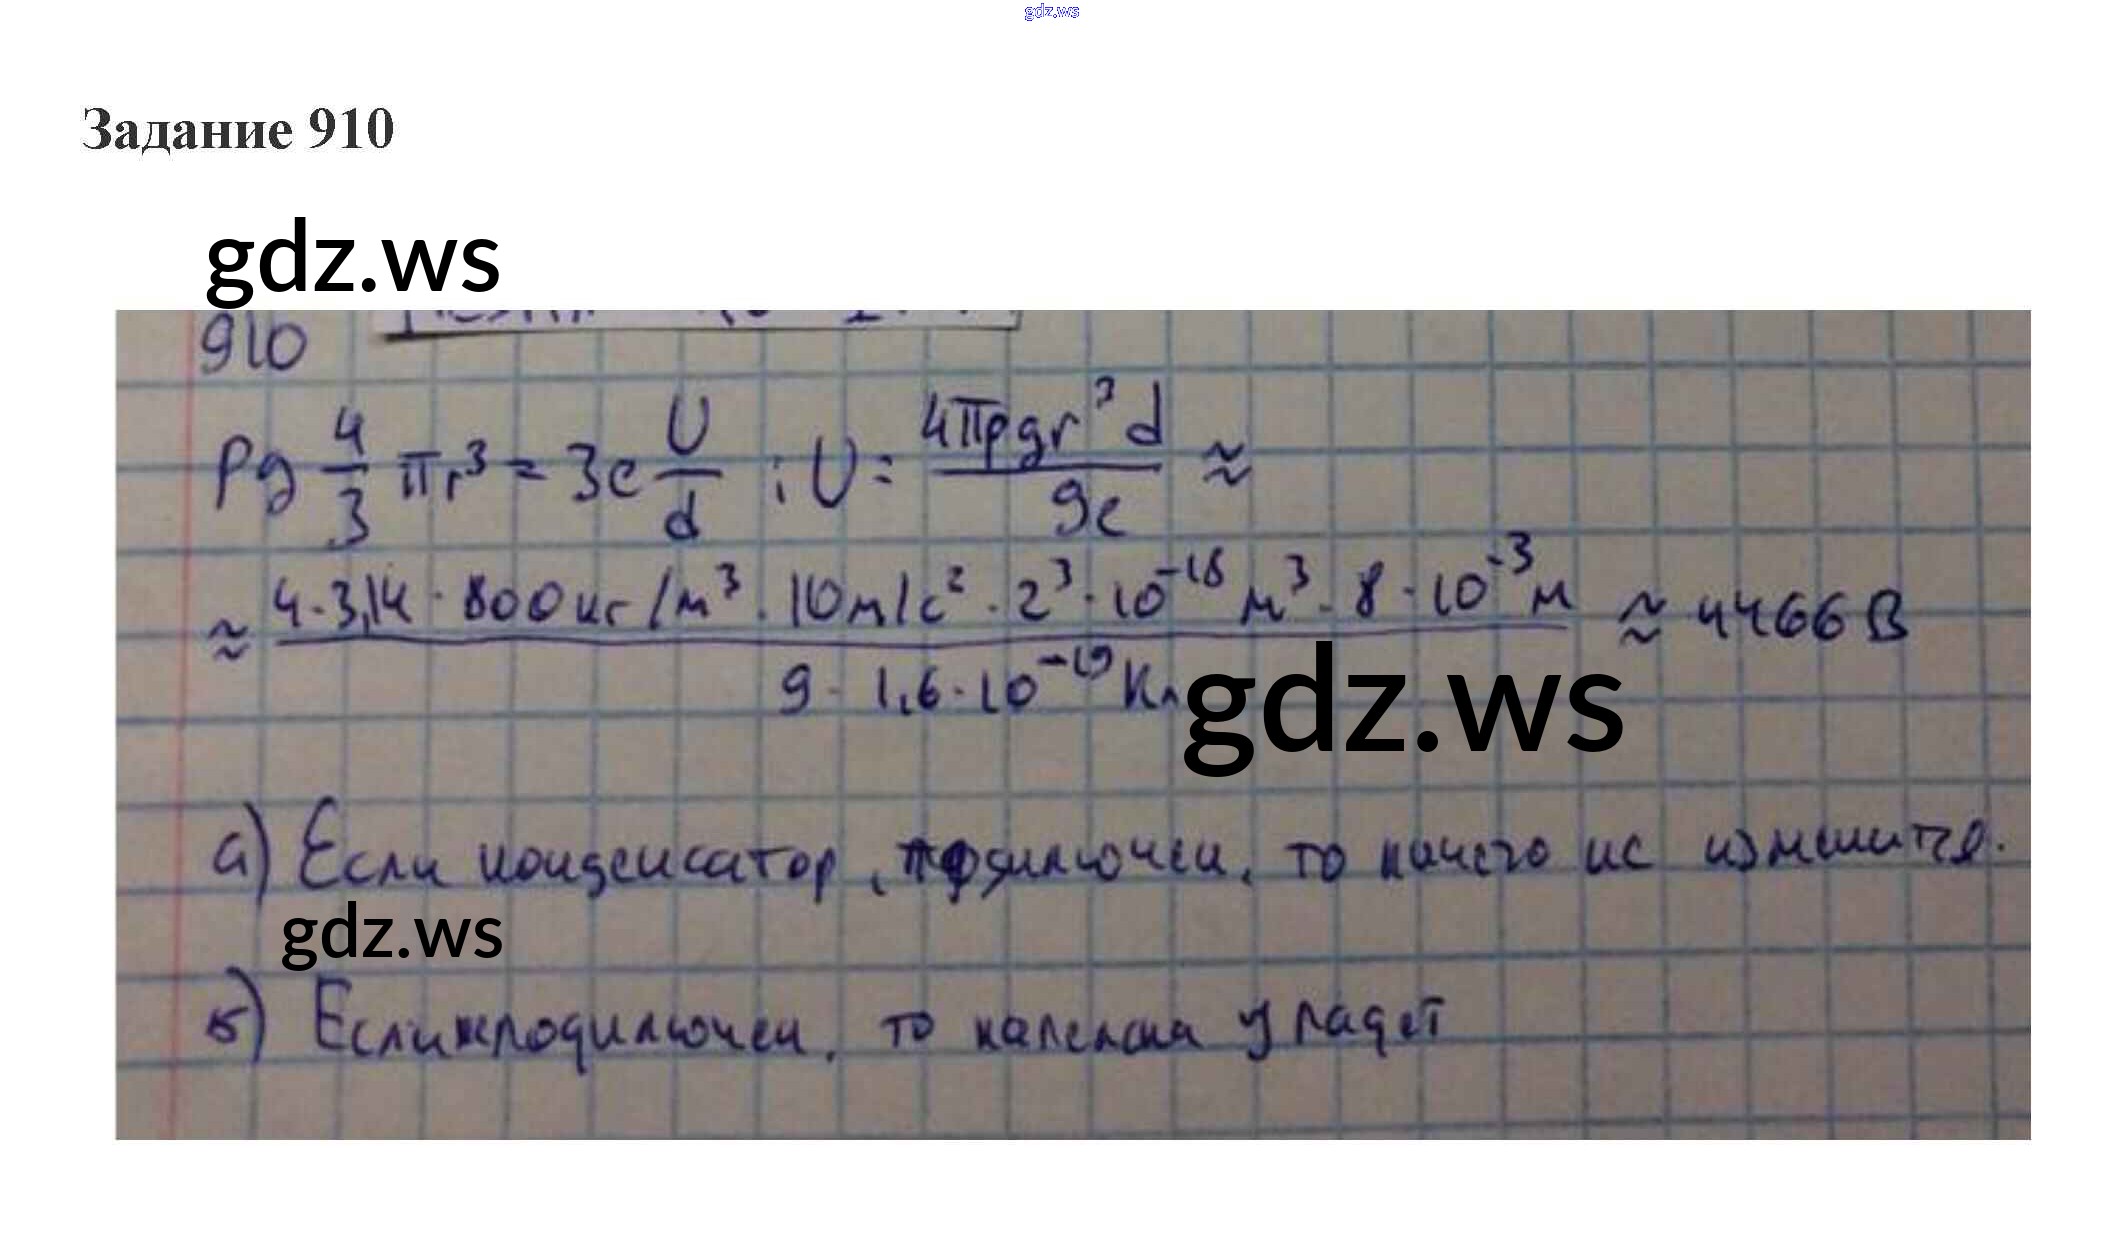 gdz.ws
Задание 910
gdz.ws
910
ρg 4/3 πr³ = 3e U/d ; U = 4πρgr³d / 9e ≈
≈ 4·3,14·800кг/м³·10м/с²·2³·10⁻¹⁸м³·8·10⁻³м / 9·1,6·10⁻¹⁹Кл ≈ 4466В
gdz.ws
а) Если конденсатор, подключен, то ничего не изменится.
gdz.ws
б) Если подключен, то капелька упадет